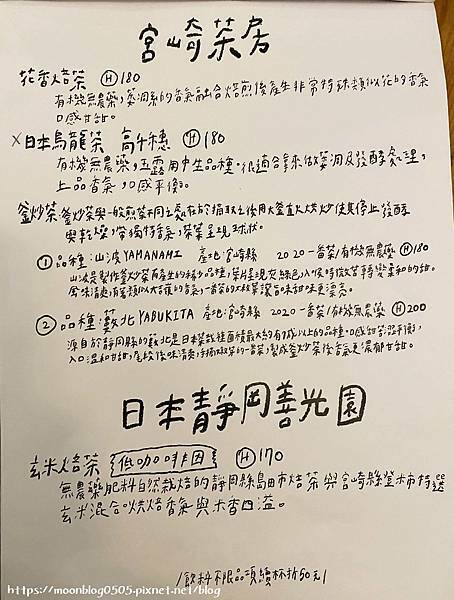 宮崎茶房
花香焙茶 Ⓗ180
有機無農藥,萎凋系的香氣融合焙煎後產生非常特殊類似花的香氣
口感甘甜。
X日本烏龍茶 高千穗 Ⓗ180
有機無農藥,玉露用中生品種。很適合拿來做萎凋及發酵處理,
上品香氣,口感平衡。
釜炒茶 釜炒茶與一般煎茶不同之處在於摘取之後用大釜直火烘炒使其停止發酵
與乾燥,帶獨特香氣,茶葉呈現球狀。
① 品種:山波YAMANAMI 產地:宮崎縣 2020一番茶/有機無農藥 Ⓗ180
山波是製作釜炒茶有產生的稀少品種,葉片呈現灰綠色,入喉時微苦轉變柔和的甜。
風味清爽,有
② 品種:藪北YABUKITA 產地:宮崎縣 2020一番茶/有機無農藥 Ⓗ200
源自於靜岡縣的藪北是日本茶栽種面積最大約有7成以上的品種。口感甜苦澀平衡,
入口溫和甘甜,尾段後味清爽,手摘嫩芽的一番茶,製成釜炒茶後香氣更濃郁甘甜。
日本靜岡善光園
玄米焙茶 低咖啡因 Ⓗ170
無農藥肥料自然栽焙的靜岡縣島田市焙茶與宮崎縣登米市特選
玄米混合烘焙香氣與米香四溢。
/飲料不限品項續杯折50元/
https://moonblog0505.pixnet.net/blog